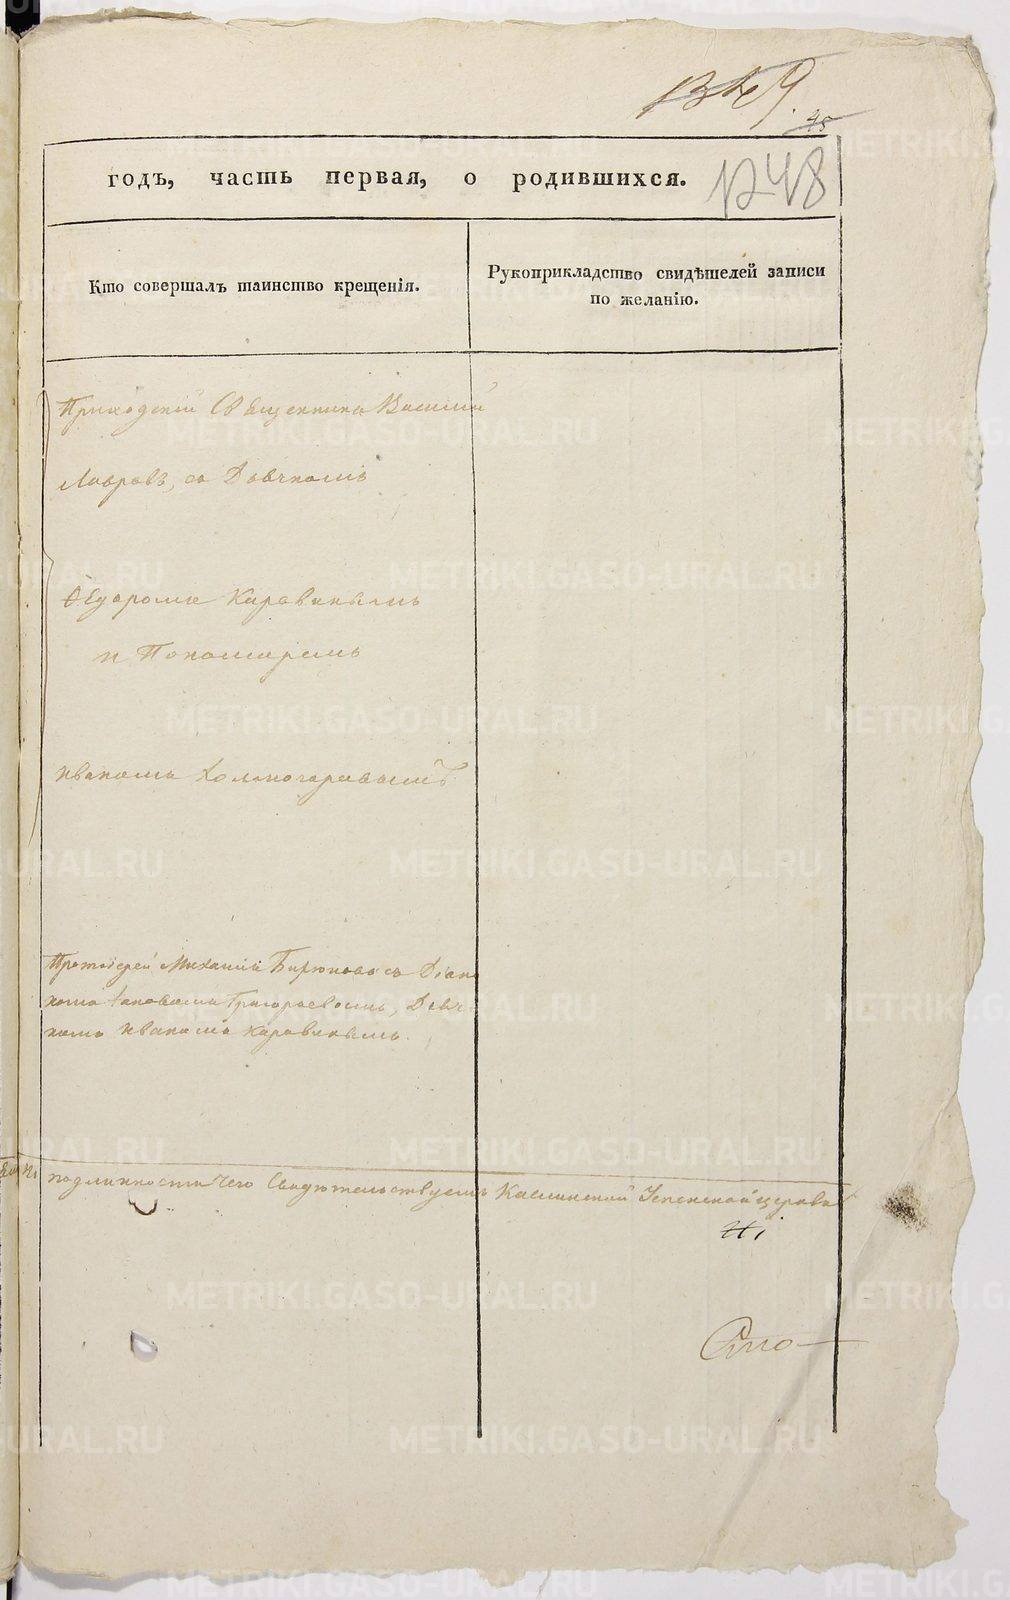 45
годъ, часть первая, о родившихся.
1248
Кто совершалъ таинство крещенія.
Рукоприкладство свидѣтелей записи
по желанію.
Приходскій Священникъ Василій
Лавровъ, съ Дьячкомъ
Ѳедоромъ Каровинымъ
и Пономаремъ
Иваномъ Холмогоровымъ
Протоіерей Михаилъ Бирюковъ съ Діако
номъ Григорьевомъ, Дьяч-
комъ Иваномъ Каровинымъ.
подлинности чего Свидѣтельствуемъ Каслинской Успенской церкви
METRIKI.GASO-URAL.RU